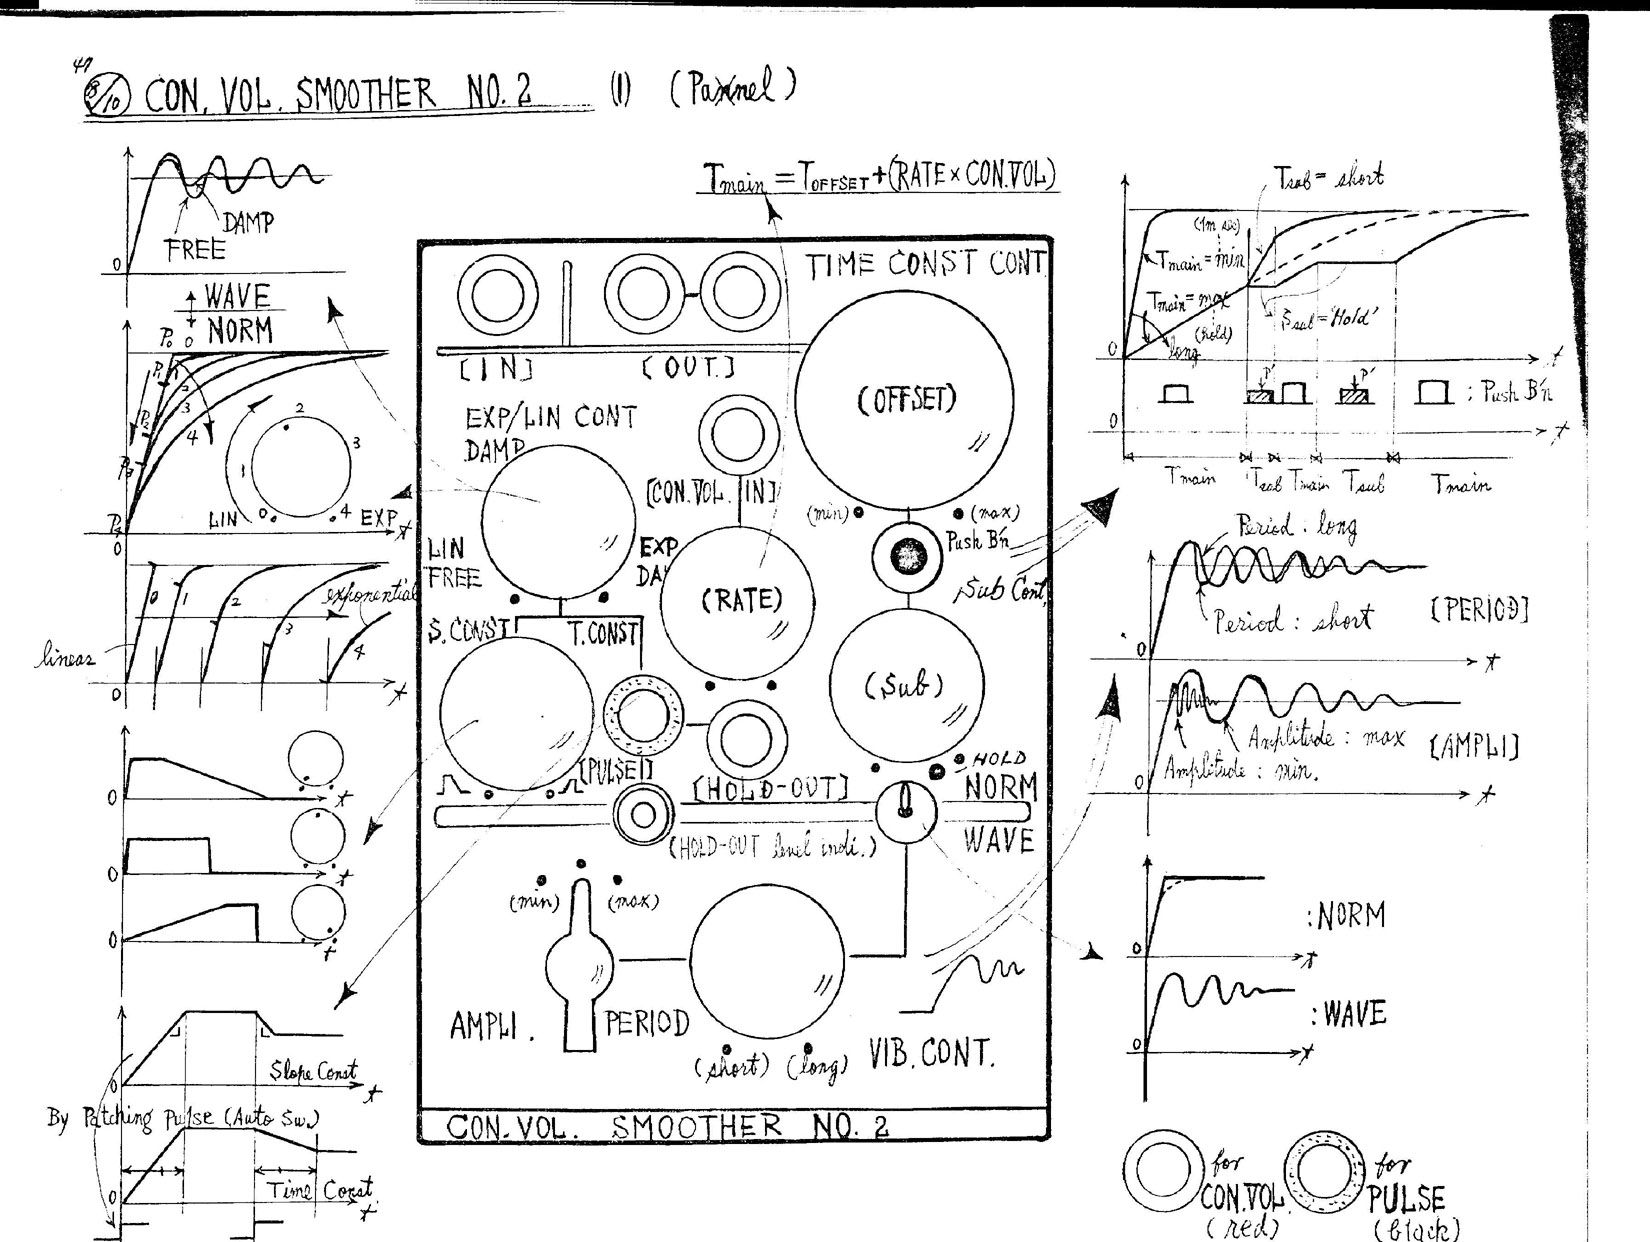 47
8/10 CON. VOL. SMOOTHER NO. 2 (1) (Pannel)
Tmain = TOFFSET + (RATE × CON.VOL)
DAMP
FREE
0
WAVE
NORM
P₀ 0
P₁ 1
2
P₂ 3
4
P₃
P₄
0
2
1 3
LIN 0 4 EXP t
0 1 2 exponential
3
4
linear
0 t
0 t
0 t
0 t
0 Slope Const t
By Patching Pulse (Auto Sw.)
0 Time Const t
TIME CONST CONT
[IN] [OUT]
(OFFSET)
EXP/LIN CONT
DAMP
[CON.VOL. IN]
(min) (max)
Push B'n
LIN EXP
FREE
Sub Cont.
(RATE)
S.CONST T.CONST
(Sub)
[PULSE I]
HOLD
[HOLD-OUT] NORM
(HOLD-OUT level indi.) WAVE
(min) (max)
AMPLI. PERIOD
(short) (long) VIB. CONT.
CON.VOL. SMOOTHER NO. 2
Tsub = short
(1m sec)
Tmain = min
Tmain = max
(hold)
long
Ssub = 'Hold'
0 t
P' P'
: Push B'n
0 t
Tmain Tsub Tmain Tsub Tmain
Period : long
Period : short [PERIOD]
0 t
Amplitude : max [AMPLI]
Amplitude : min.
0 t
: NORM
0 t
: WAVE
0 t
for CON.VOL. (red)
for PULSE (black)